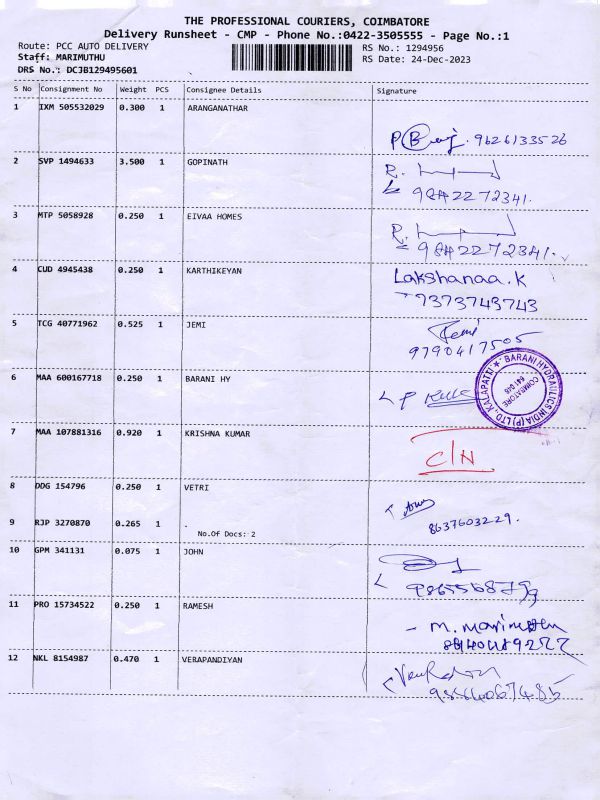 THE PROFESSIONAL COURIERS, COIMBATORE
Delivery Runsheet - CMP - Phone No.:0422-3505555 - Page No.:1
Route: PCC AUTO DELIVERY
RS No.: 1294956
Staff: MARIMUTHU
RS Date: 24-Dec-2023
DRS No.: DCJB129495601
S No Consignment No Weight PCS Consignee Details Signature
1 IXM 505532029 0.300 1 ARANGANATHAR
9626133526
2 SVP 1494633 3.500 1 GOPINATH
R.
9842272341.
3 MTP 5058928 0.250 1 EIVAA HOMES
R.
9842272341.
4 CUD 4945438 0.250 1 KARTHIKEYAN
Lakshanaa.K
7373743743
5 TCG 40771962 0.525 1 JEMI
Jemi
9790417505
6 MAA 600167718 0.250 1 BARANI HY
BARANI HYDRAULICS INDIA (P) LTD, KALAPATTI
COIMBATORE
641 048
7 MAA 107881316 0.920 1 KRISHNA KUMAR
C/N
8 DDG 154796 0.250 1 VETRI
8637603229.
9 RJP 3270870 0.265 1 .
No.Of Docs: 2
10 GPM 341131 0.075 1 JOHN
11 PRO 15734522 0.250 1 RAMESH
- M. Marimuthu
12 NKL 8154987 0.470 1 VERAPANDIYAN